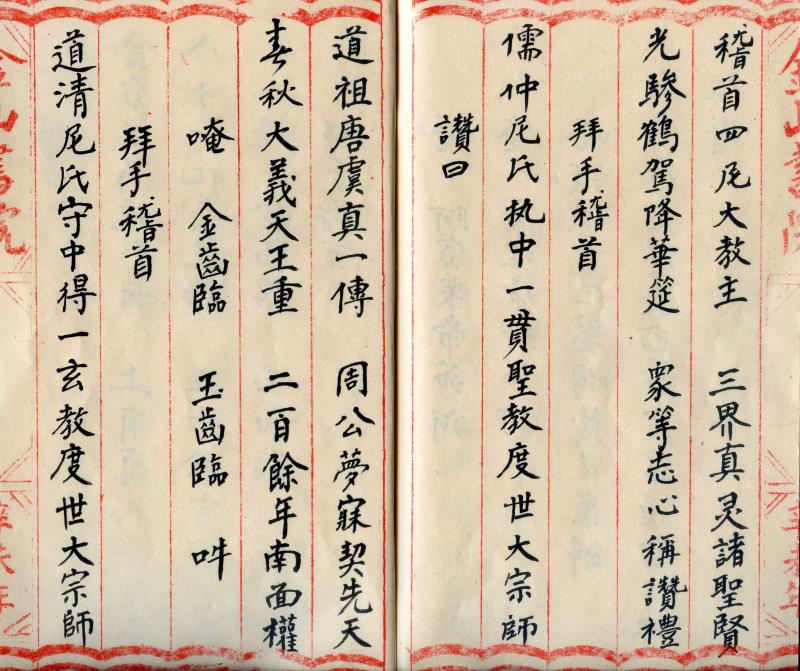 稽首四尼大教主　三界真灵諸聖賢
光驂鶴駕降華筵　衆等志心稱讚禮
拜手稽首
儒仲尼氏执中一貫聖教度世大宗師
讚曰
道祖唐虞真一傳　周公夢寐契先天
春秋大義天王重　二百餘年南面權
唵　金齒臨　玉齒臨　吽
拜手稽首
道清尼氏守中得一玄教度世大宗師